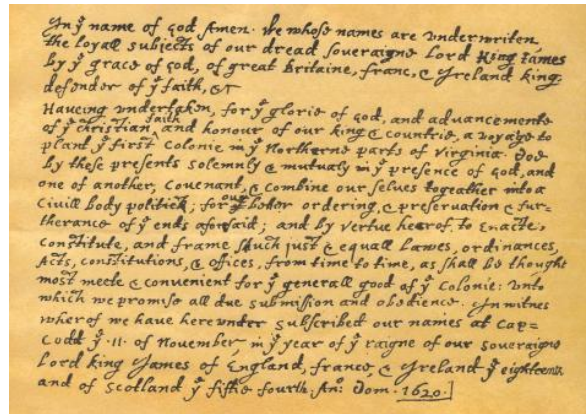 In yᵉ name of God Amen. We whose names are underwriten,
the loyall subjects of our dread soveraigne Lord King James
by yᵉ grace of God, of great Britaine, franc, & Ireland king,
defender of yᵉ faith, &c
Haveing undertaken, for yᵉ glorie of God, and advancemente
of yᵉ christian faith and honour of our king & countrie, a voyage to
plant yᵉ first Colonie in yᵉ Northerne parts of Virginia. Doe
by these presents solemnly & mutualy in yᵉ presence of God, and
one of another, Covenant, & combine our selves togeather into a
Civill body politick; for our better ordering, & preservation & fur=
therance of yᵉ ends aforesaid; and by vertue hearof, to Enacte,
Constitute, and frame shuch just & equall Lawes, ordinances,
Acts, constitutions, & offices, from time to time, as shall be thought
most meete & convenient for yᵉ generall good of yᵉ Colonie: Unto
which we promise all due submission and obedience. In witnes
wherof we have hereunder subscribed our names at Cap=
Codd yᵉ .11. of November, in yᵉ year of yᵉ raigne of our soveraigne
Lord King James of England, france, & Ireland yᵉ eighteenth
and of Scotland yᵉ fiftie fourth. Anᵒ: Dom. 1620.]